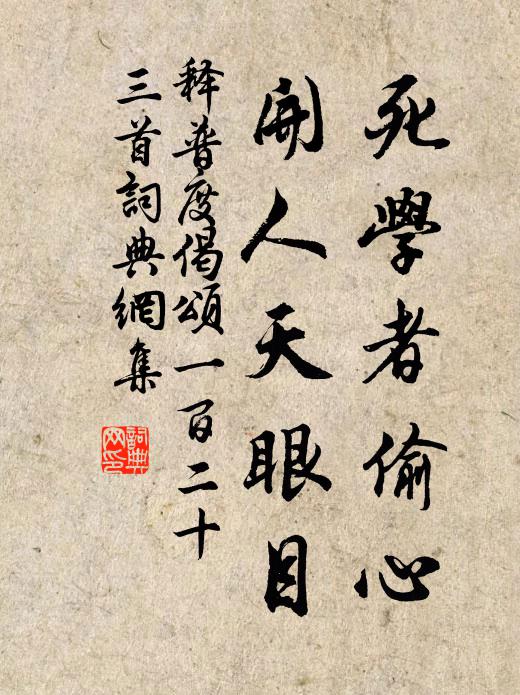 死學者偷心
開人天眼目
释普度偈頌一百二十
三首詞典網集
詞典
网印